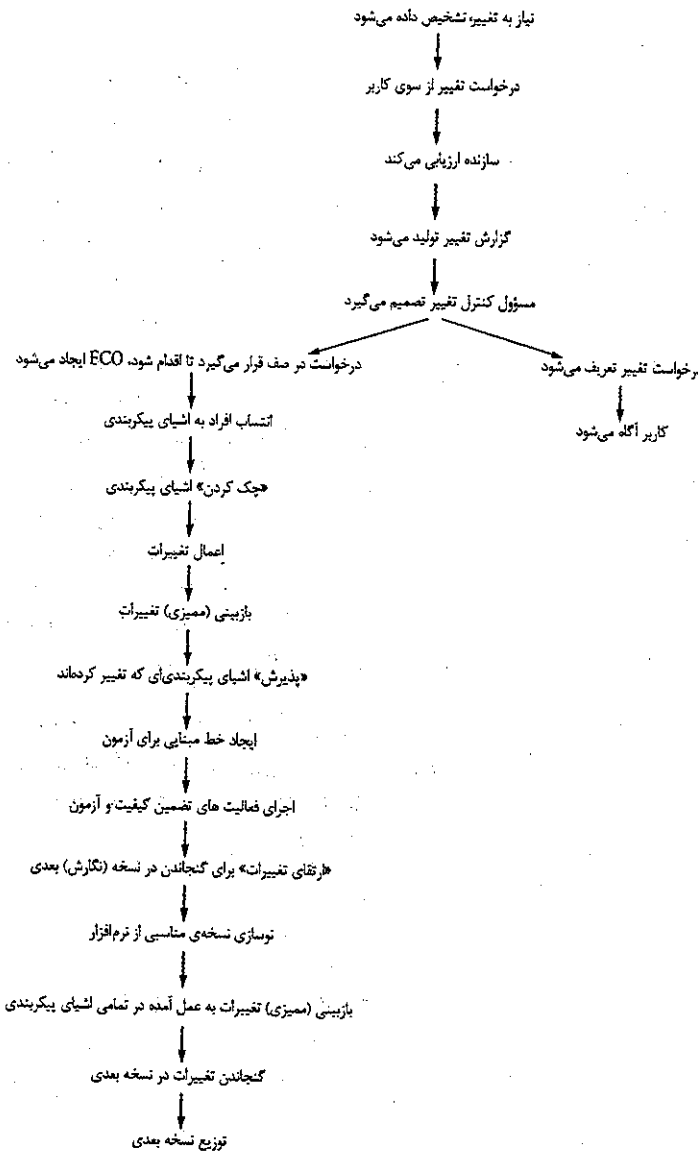 نیاز به تغییر، تشخیص داده می‌شود
درخواست تغییر از سوی کاربر
سازنده ارزیابی می‌کند
گزارش تغییر تولید می‌شود
مسؤول کنترل تغییر تصمیم می‌گیرد
درخواست در صف قرار می‌گیرد تا اقدام شود، ECO ایجاد می‌شود
رخواست تغییر تعریف می‌شود
کاربر آگاه می‌شود
انتساب افراد به اشیای پیکربندی
«چک کردن» اشیای پیکربندی
اعمال تغییرات
بازبینی (ممیزی) تغییرات
«پذیرش» اشیای پیکربندی‌ای که تغییر کرده‌اند
ایجاد خط مبنایی برای آزمون
اجرای فعالیت های تضمین کیفیت و آزمون
«ارتقای تغییرات» برای گنجاندن در نسخه (نگارش) بعدی
نوسازی نسخه‌ی مناسبی از نرم‌افزار
بازبینی (ممیزی) تغییرات به عمل آمده در تمامی اشیای پیکربندی
گنجاندن تغییرات در نسخه بعدی
توزیع نسخه بعدی